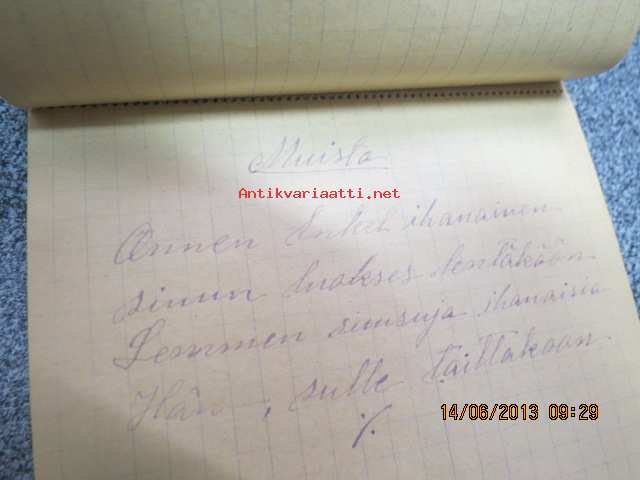 Muista
Antikvariaatti.net
Onnen Enkel ihanainen
sinun luokses lentäköön
Lemmen ruusuja ihanaisia
Hän, sulle taittakoon
%
14/06/2013 09:29